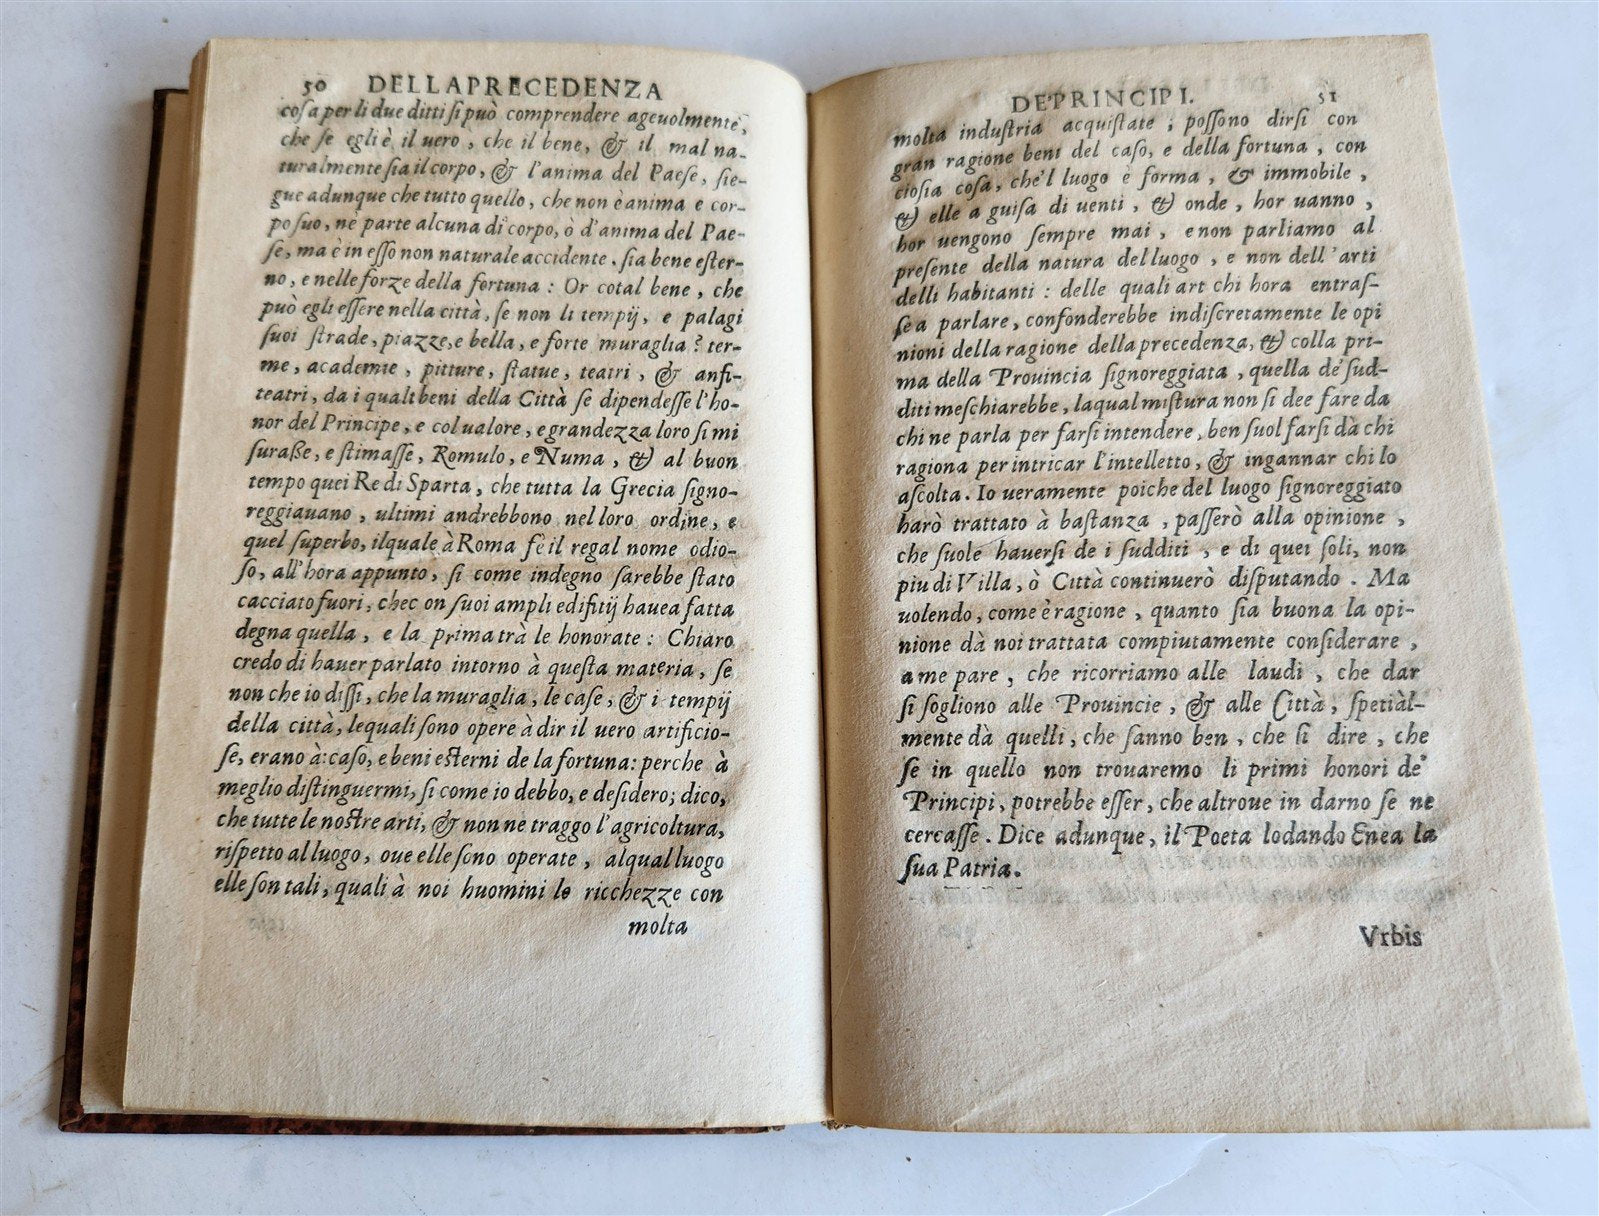 50 DELLA PRECEDENZA
coſa per li due ditti ſi può comprendere ageuolmente,
che ſe egli è il uero, che il bene, & il mal na-
turalmente ſia il corpo, & l'anima del Paeſe, ſie-
gue adunque che tutto quello, che non è anima e cor-
po ſuo, nè parte alcuna di corpo, ò d'anima del Pae-
ſe, ma è in eſſo non naturale accidente. ſia bene eſter-
no, e nelle forze della fortuna: Or cotal bene, che
può egli eſſere nella città, ſe non li tempij, e palagi
ſuoi ſtrade, piazze, e bella, e forte muraglia? ter-
me, academie, pitture, ſtatue, teatri, & anfi-
teatri, da i quali beni della Città ſe dipendeſſe l'ho-
nor del Principe, e col ualore, e grandezza loro ſi mi
ſuraſſe, e ſtimaſſe, Romulo, e Numa, & al buon
tempo quei Re di Sparta, che tutta la Grecia ſigno-
reggiauano, ultimi andrebbono nel loro ordine, e
quel ſuperbo, ilquale à Roma fè il regal nome odio-
ſo, all'hora appunto, ſi come indegno ſarebbe ſtato
cacciato fuori, chec on ſuoi ampli edifitij hauea fatta
degna quella, e la prima trà le honorate: Chiaro
credo di hauer parlato intorno à queſta materia, ſe
non che io diſſi, che la muraglia, le caſe, & i tempij
della città, lequali ſono opere à dir il uero artificio-
ſe, erano à caſo, e beni eſterni de la fortuna: perche à
meglio diſtinguermi, ſi come io debbo, e deſidero; dico,
che tutte le noſtre arti, & non ne traggo l'agricoltura,
riſpetto al luogo, oue elle ſono operate, alqual luogo
elle ſon tali, quali à noi huomini le ricchezze con
molta
DE' PRINCIPI. 51
molta induſtria acquiſtate; poſſono dirſi con
gran ragione beni del caſo, e della fortuna, con
cioſia coſa, che'l luogo è forma, & immobile,
& elle a guiſa di uenti, & onde, hor uanno,
hor uengono ſempre mai, e non parliamo al
preſente della natura del luogo, e non dell'arti
delli habitanti: delle quali art chi hora entraſ-
ſe a parlare, confonderebbe indiſcretamente le opi
nioni della ragione della precedenza, & colla pri-
ma della Prouincia ſignoreggiata, quella de' ſud-
diti meſchiarebbe, laqual miſtura non ſi dee fare da
chi ne parla per farſi intendere, ben ſuol farſi dà chi
ragiona per intricar l'intelletto, & ingannar chi lo
aſcolta. Io ueramente poiche del luogo ſignoreggiato
harò trattato à baſtanza, paſſerò alla opinione,
che ſuole hauerſi de i ſudditi, e di quei ſoli, non
piu di Villa, ò Città continuerò diſputando. Ma
uolendo, come è ragione, quanto ſia buona la opi-
nione dà noi trattata compiutamente conſiderare,
a me pare, che ricorriamo alle laudi, che dar
ſi ſogliono alle Prouincie, & alle Città, ſpetiàl-
mente dà quelli, che ſanno ben, che ſi dire, che
ſe in quello non trouaremo li primi honori de'
Principi, potrebbe eſſer, che altroue in darno ſe ne
cercaſſe. Dice adunque, il Poeta lodando Enea la
ſua Patria.
Vrbis